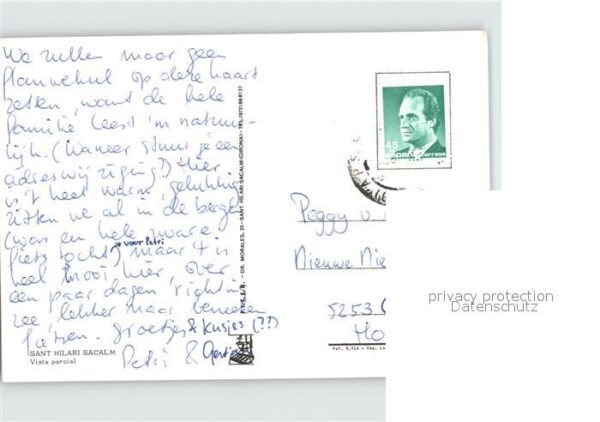 We zullen maar geen
flauwekul op deze kaart
zetten, want de hele
familie leest 'm natuur-
lijk. (Wanneer stuur je een
adreswijziging?) Hier
is 't heel warm, gelukkig
zitten we al in de bergen
(was en hele zware
voor Petri
fietstocht) maar 't is
heel mooi hier, over
een paar dagen richting
zee, lekker naar beneden
fietsen. Groetjes & kusjes (??)
Petri &
SANT HILARI SACALM
Vista parcial
DR. MORALES, 35 - SANT HILARI SACALM (GIRONA) - TEL. (972) 868137
45
españa correos
Peggy v
Nieuwe Nie
5253
Ho
privacy protection
Datenschutz